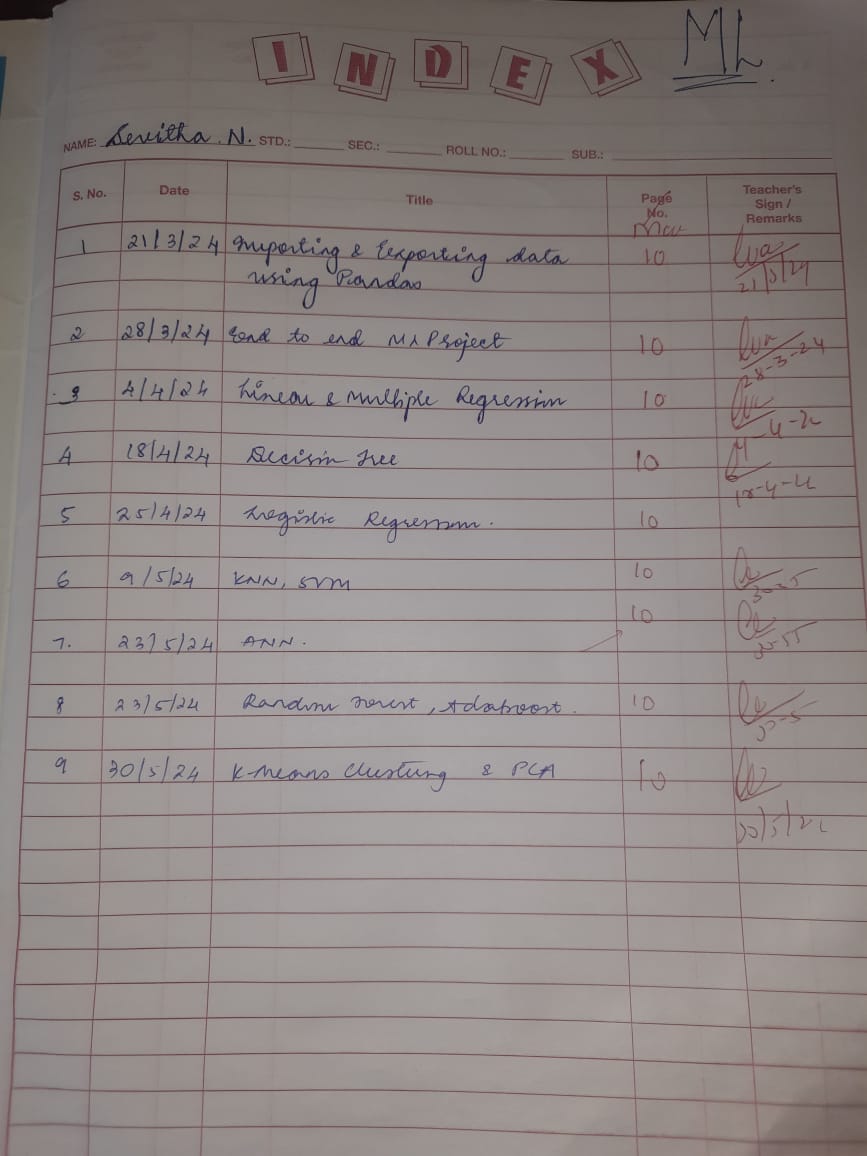 INDEX
ML
NAME: N. STD.: SEC.: ROLL NO.: SUB.:
S. No. Date Title Page No. Teacher's Sign / Remarks
1 21/3/24 Importing & Exporting data 10
using Pandas 21/3/24
2 28/3/24 End to end ML Project 10
28-3-24
3 4/4/24 Linear & Multiple Regression 10
4 18/4/24 Decision Tree 10
5 25/4/24 Logistic Regression. 10
6 9/5/24 KNN, SVM 10
10
7. 23/5/24 ANN.
8 23/5/24 Random Forest, Adaboost. 10
9 30/5/24 K-means Clustering & PCA 10